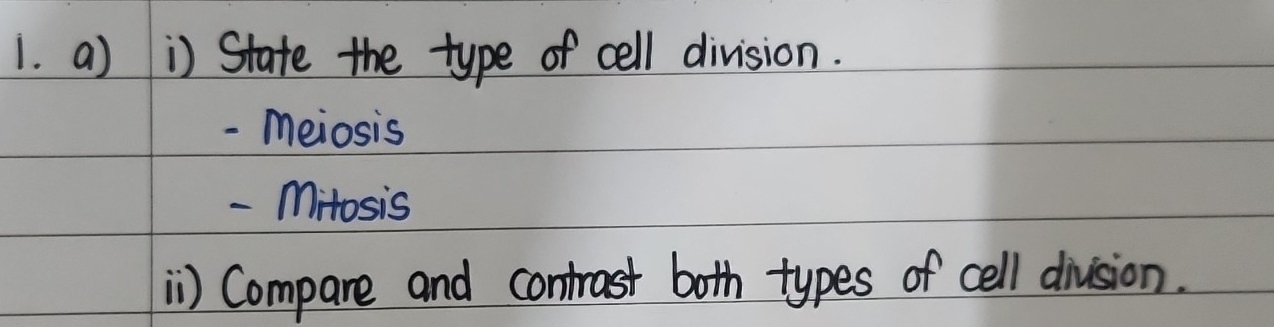 1. a) i) State the type of cell division.
- Meiosis
- Mitosis
ii) Compare and contrast both types of cell division.